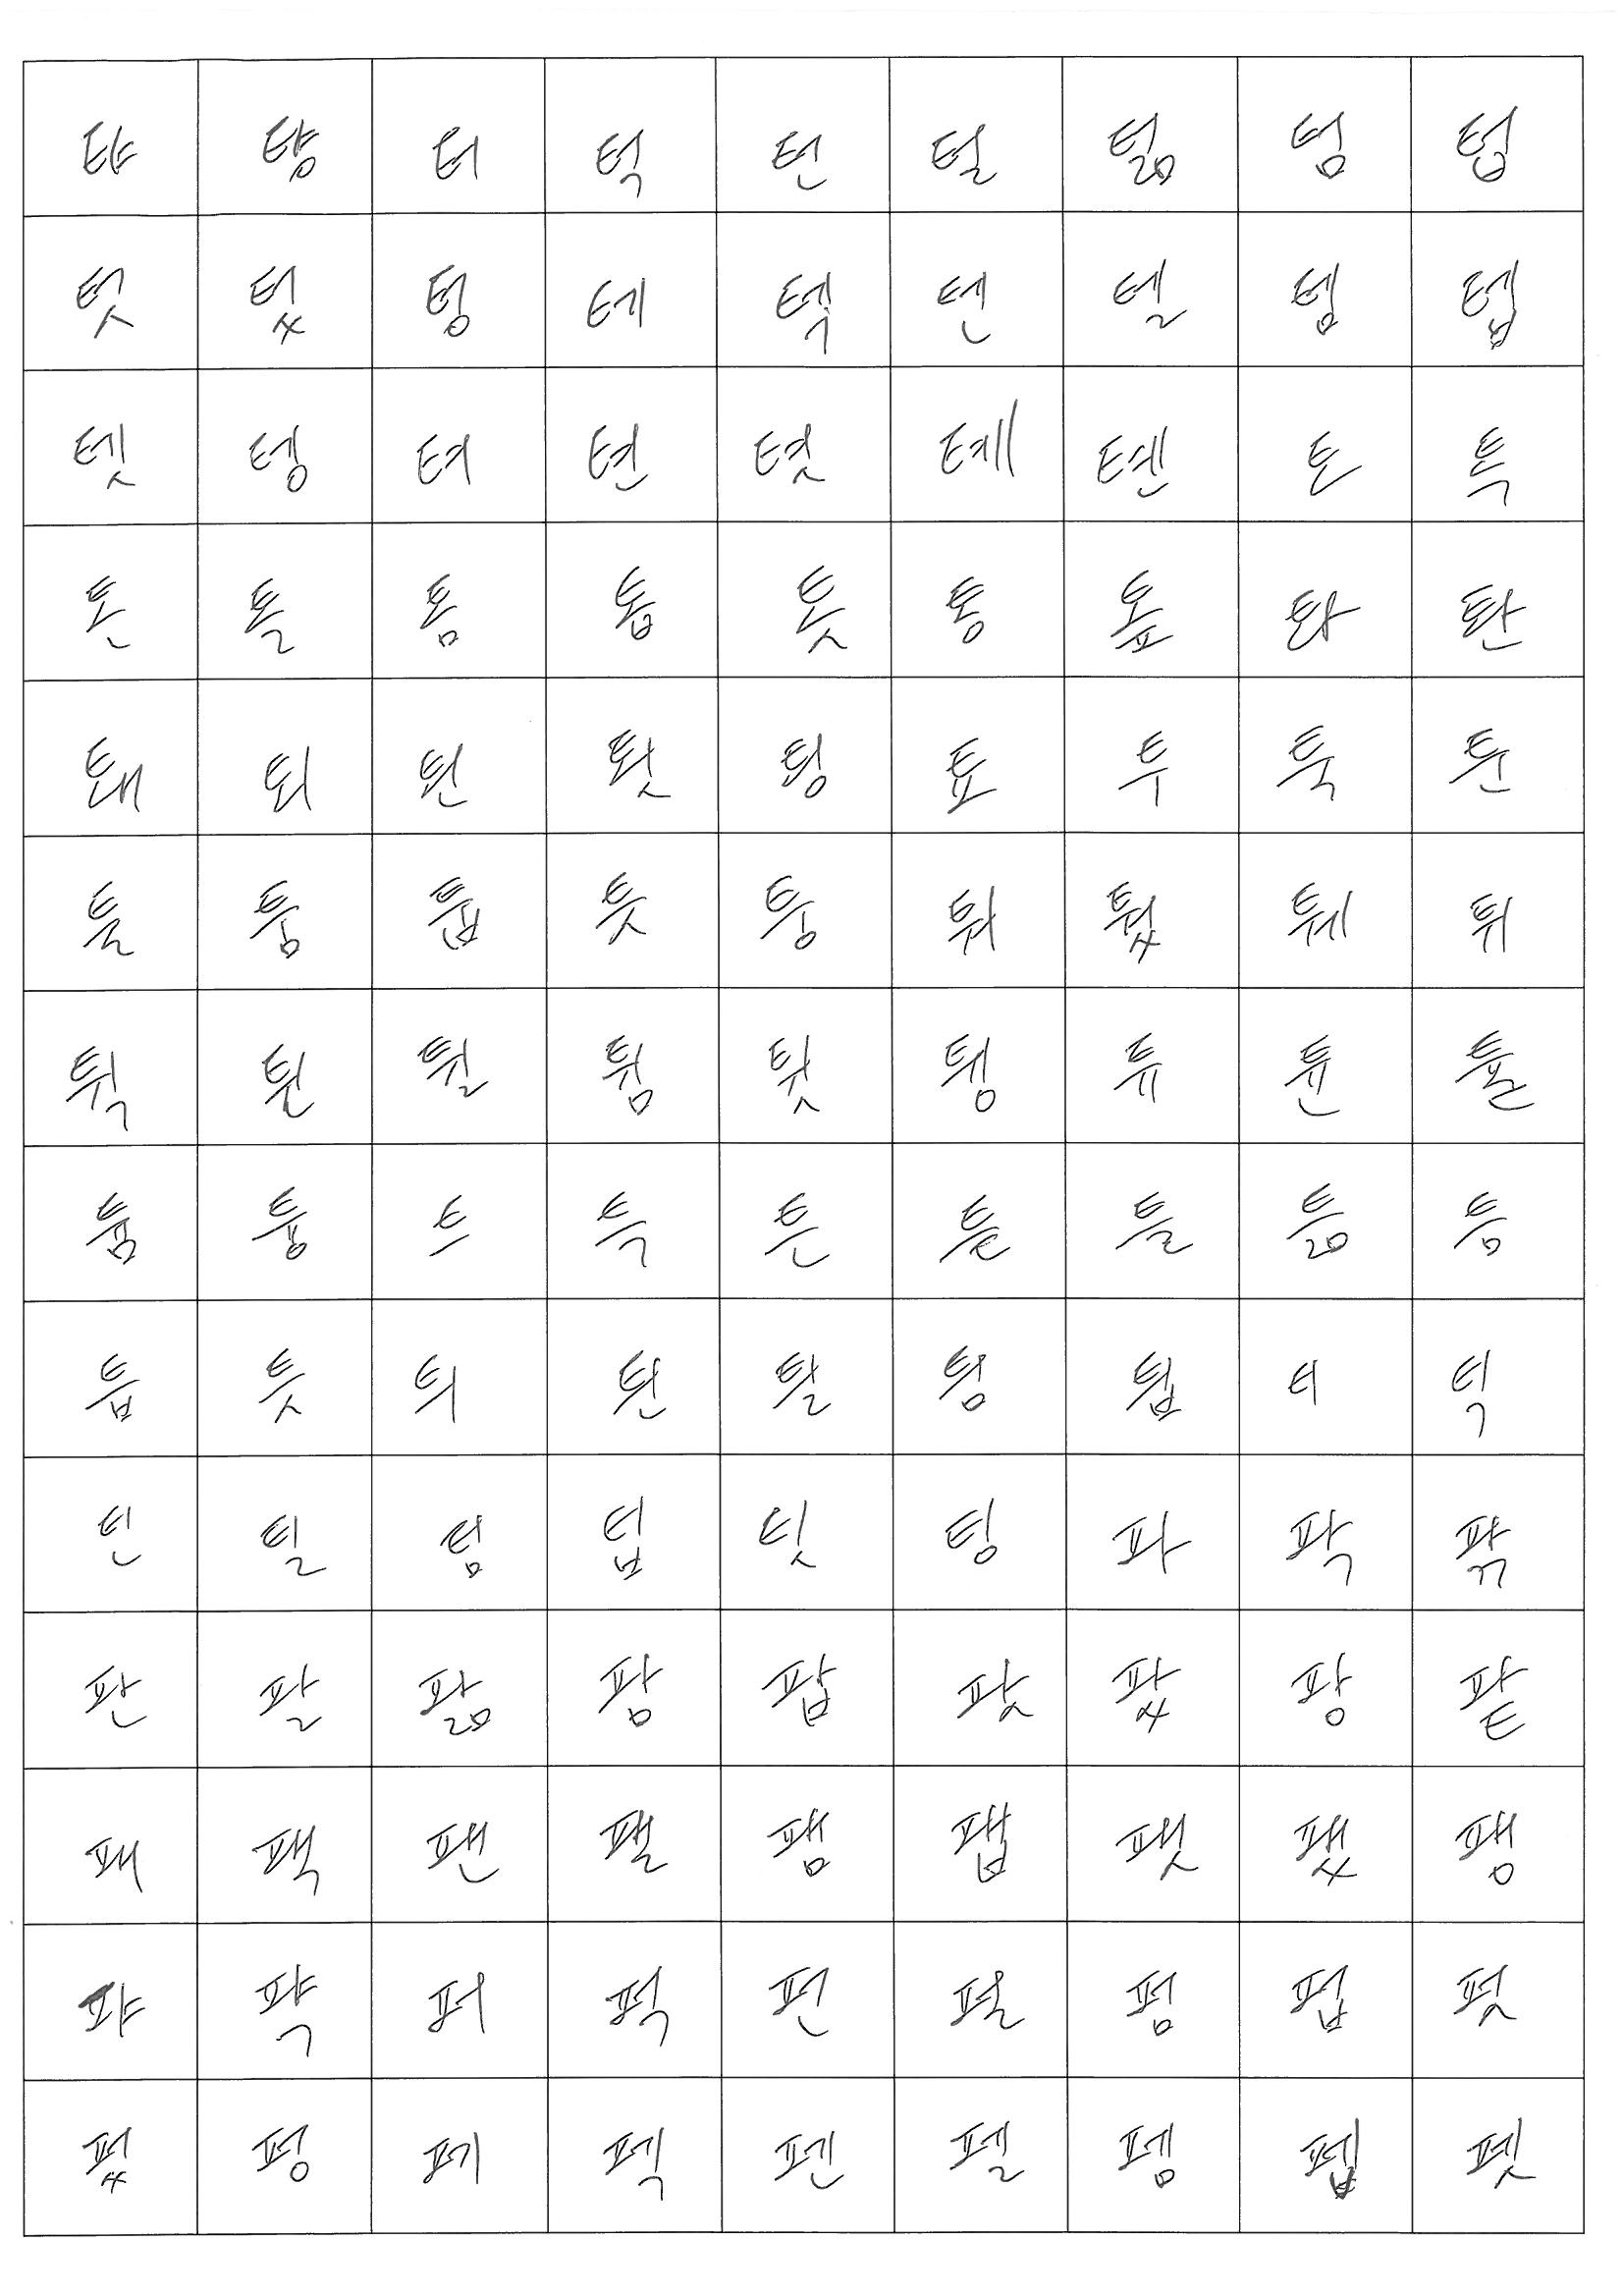 탸 턍 터 턱 턴 털 턺 텀 텁
텃 텄 텅 테 텍 텐 텔 템 텝
텟 텡 텨 텬 텻 톄 톈 토 톡
톤 톨 톰 톱 톳 통 톺 톼 퇀
퇘 퇴 퇸 툇 툉 툐 투 툭 툰
툴 툼 툽 툿 퉁 퉈 퉜 퉤 튀
튁 튄 튈 튐 튓 튕 튜 튠 튤
튬 튱 트 특 튼 튿 틀 틂 틈
틉 틋 틔 틘 틜 틤 틥 티 틱
틴 틸 팀 팁 팃 팅 파 팍 팎
판 팔 팖 팜 팝 팟 팠 팡 팥
패 팩 팬 팰 팸 팹 팻 팼 팽
퍄 퍅 퍼 퍽 펀 펄 펌 펍 펏
펐 펑 페 펙 펜 펠 펨 펩 펫